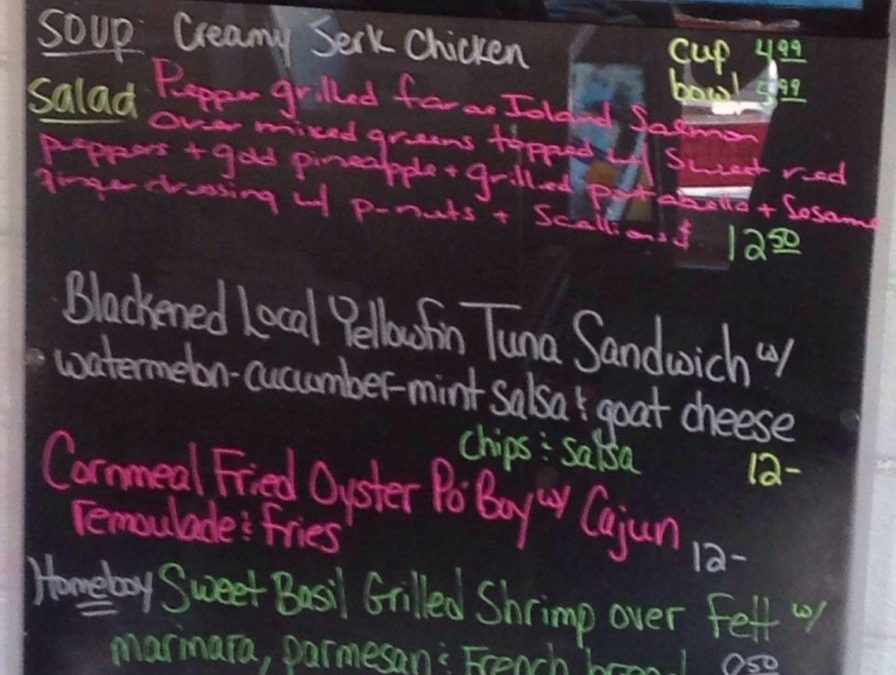 SOUP Creamy Jerk Chicken cup 4.99
bowl 5.99
Salad Pepper grilled faroe Island Salmon
over mixed greens topped w/ Sweet red
peppers + gold pineapple + grilled portabello + Sesame
ginger dressing w/ p-nuts + Scallions 12.50
Blackened Local Yellowfin Tuna Sandwich w/
watermelon-cucumber-mint salsa & goat cheese
chips & salsa 12-
Cornmeal Fried Oyster Po' Boy w/ Cajun
remoulade & fries 12-
Homeboy Sweet Basil Grilled Shrimp over Fett w/
marinara, parmesan & French bread